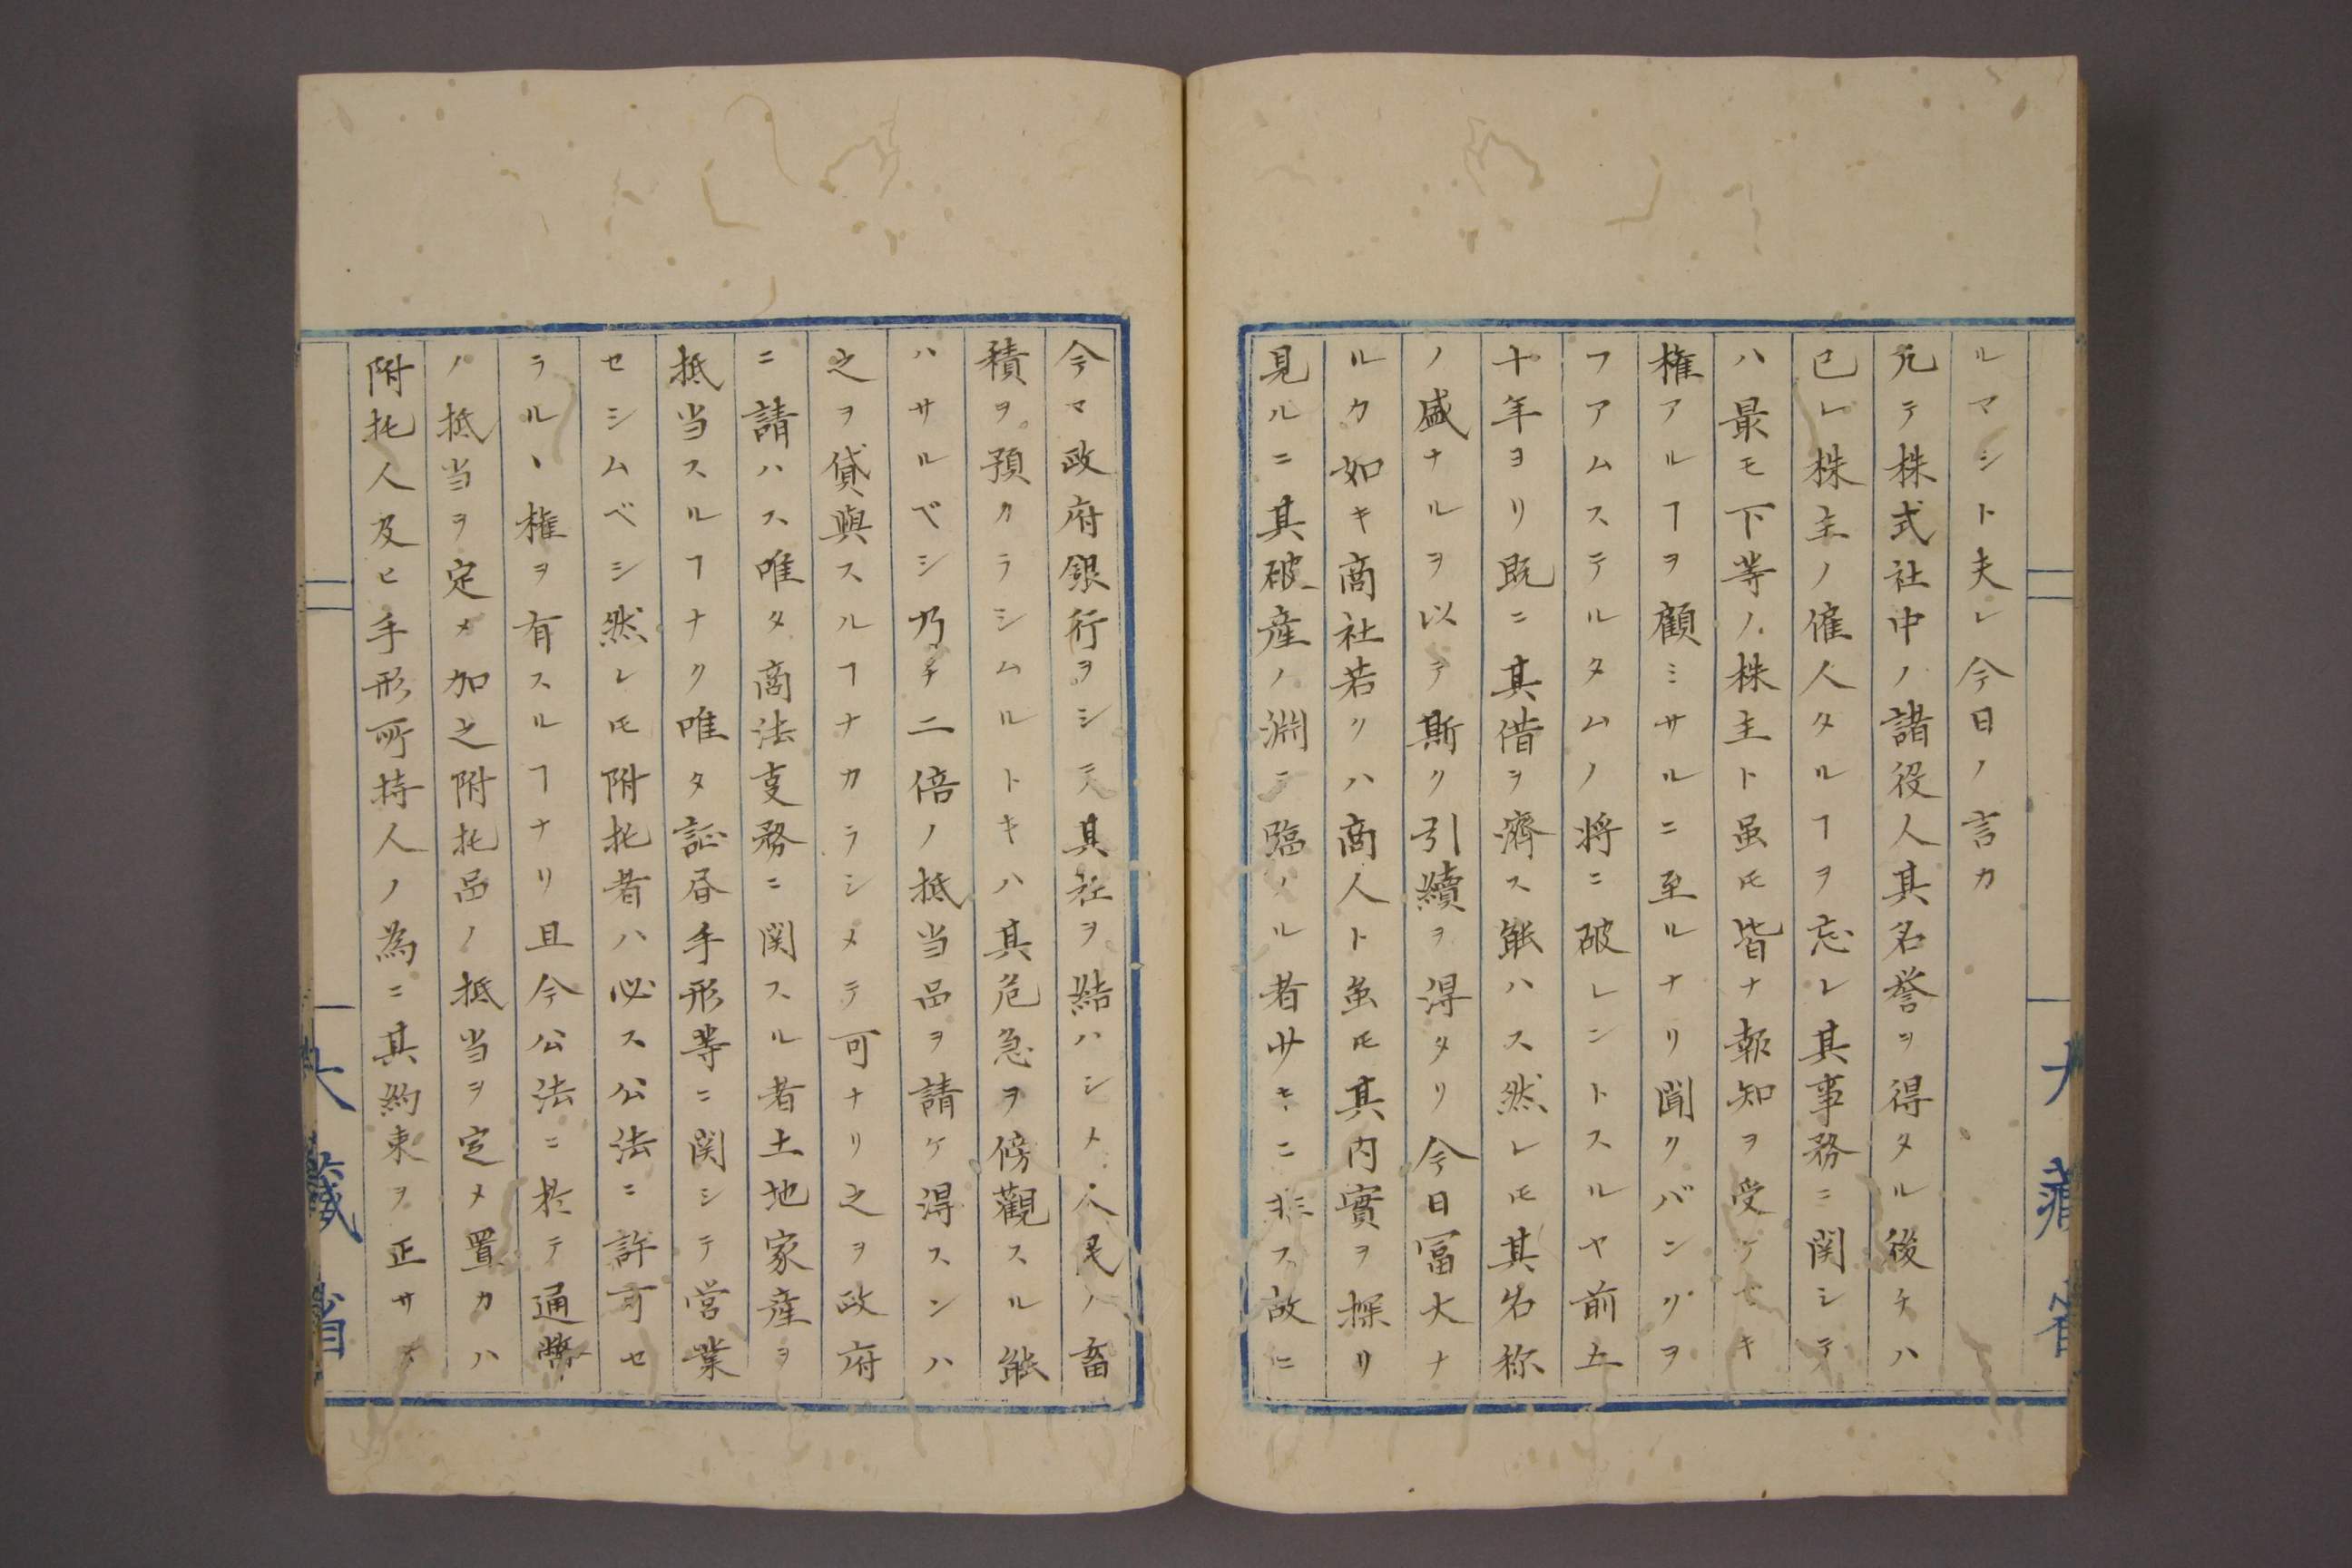 ルマシト夫レ今日ノ言カ
凡テ株式社中ノ諸役人其名誉ヲ得タル後チハ
已レ株主ノ傭人タルヿヲ忘レ其事務ニ関シテ
ハ最モ下等ノ株主ト虽𪜈皆ナ報知ヲ受クベキ
権アルヿヲ顧ミサルニ至ルナリ聞クバンリヲ
フアムステルタムノ将ニ破レントスルヤ前五
十年ヨリ既ニ其借ヲ濟ス能ハス然レ𪜈其名称
ノ盛ナルヲ以テ斯ク引續ヲ得タリ今日冨大ナ
ルカ如キ商社若クハ商人ト虽𪜈其内實ヲ探リ
見ルニ其破産ノ淵ニ臨メル者サキニ非ス故ニ
今マ政府銀行ヲシテ其社ヲ結ハシメ人民ノ畜
積ヲ預カラシムルトキハ其危急ヲ傍觀スル能
ハサルベシ乃チ二倍ノ抵当品ヲ請ケ得スンハ
之ヲ貸與スルヿナカラシメテ可ナリ之ヲ政府
ニ請ハス唯タ商法支務ニ関スル者土地家産ヲ
抵当スルヿナク唯タ証昏手形等ニ関シテ営業
セシムベシ然レ𪜈附托者ハ必ス公法ニ許可セ
ラルヽ権ヲ有スルヿナリ且今公法ニ於テ通幣
ノ抵当ヲ定メ加之附托品ノ抵当ヲ定メ置カハ
附托人及ヒ手形所持人ノ為ニ其約束ヲ正サ
大藏省
大藏省